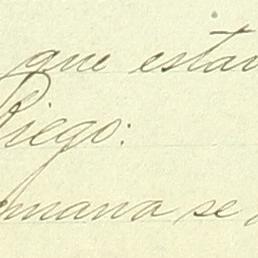 que estan
Riego:
mana se